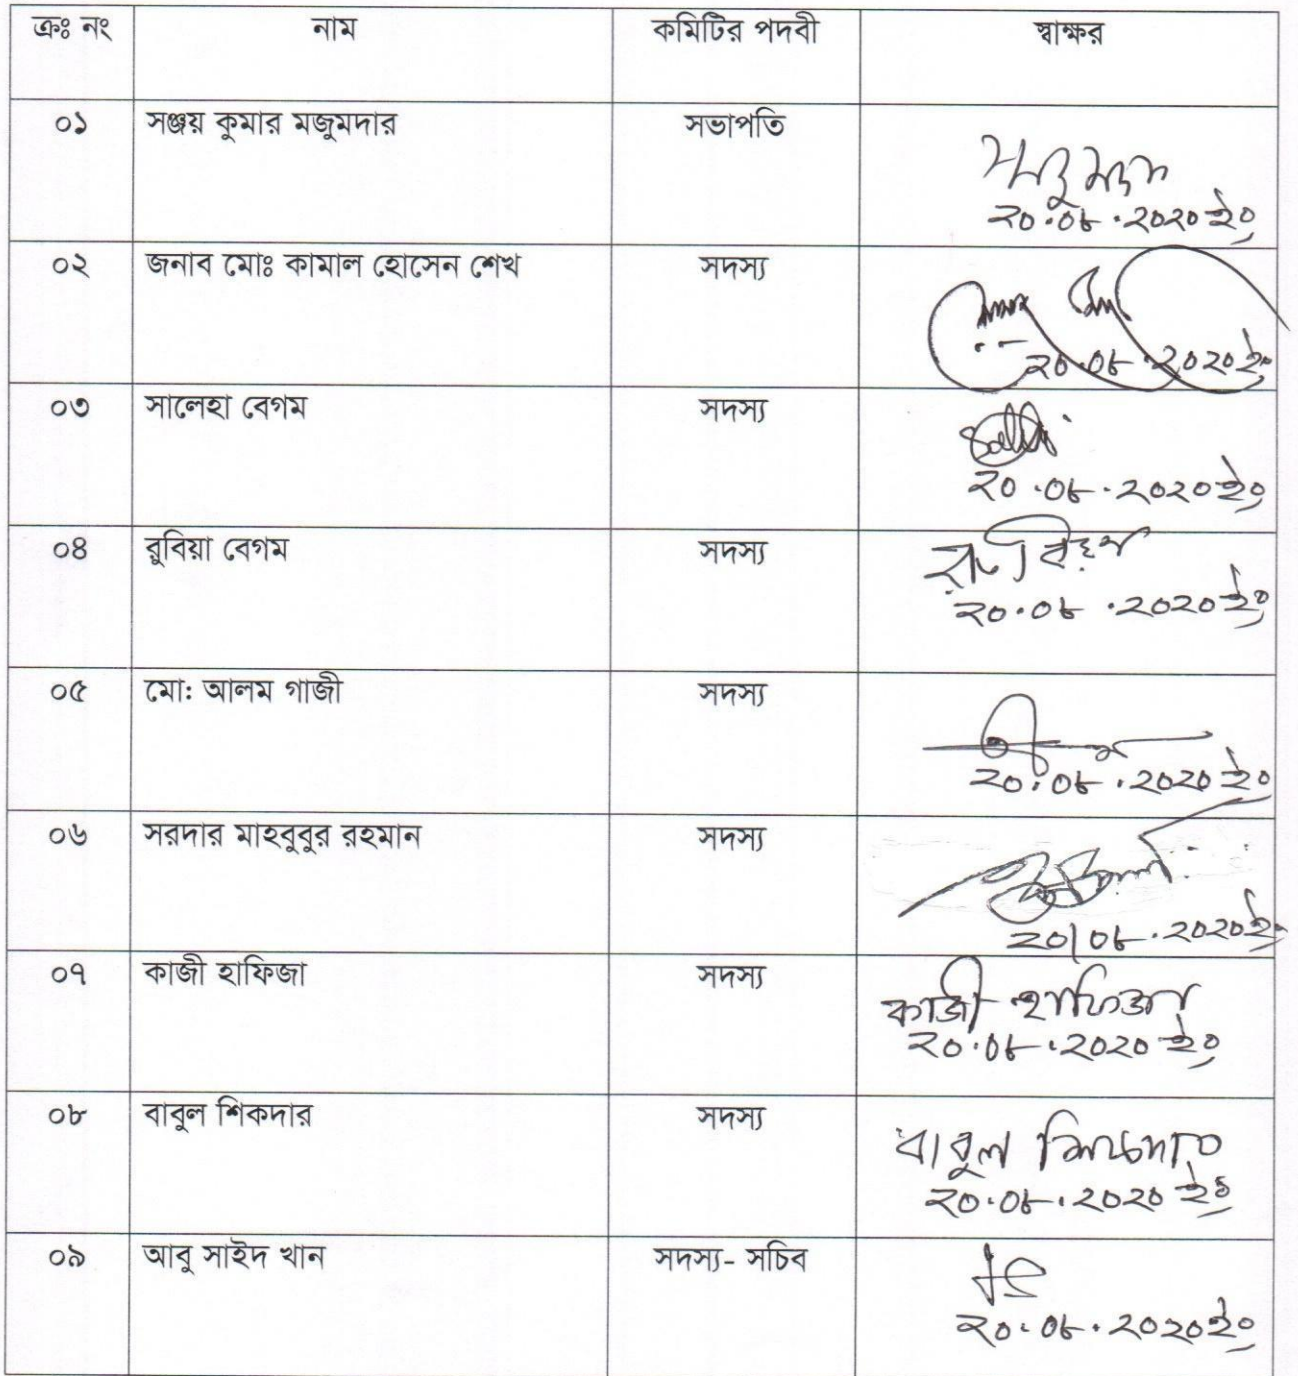 ক্রঃ নং নাম কমিটির পদবী স্বাক্ষর
০১ সঞ্জয় কুমার মজুমদার সভাপতি
২০.০৮.২০২০ ইং
০২ জনাব মোঃ কামাল হোসেন শেখ সদস্য
২০.০৮.২০২০ইং
০৩ সালেহা বেগম সদস্য
২০.০৮.২০২০ইং
০৪ রুবিয়া বেগম সদস্য
২০.০৮.২০২০ইং
০৫ মো: আলম গাজী সদস্য
২০.০৮.২০২০ ইং
০৬ সরদার মাহবুবুর রহমান সদস্য
২০|০৮.২০২০ইং
০৭ কাজী হাফিজা সদস্য কাজী হাফিজা
২০.০৮.২০২০ ইং
০৮ বাবুল শিকদার সদস্য বাবুল শিকদার
২০.০৮.২০২০ ইং
০৯ আবু সাইদ খান সদস্য- সচিব
২০.০৮.২০২০ইং